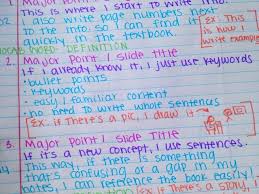 1. Major Point / Slide Title
This is where I start to write info
I also write page numbers next
to the info so I can find it
quickly in the textbook.
Ex: This
is how I
write examples
VOCAB WORD: DEFINITION
2. Major Point / Slide Title
If I already know it, I just use keywords
• bullet points
• keywords
• easy / familiar content
• no need to write whole sentences
Ex: if there's a pic, I draw it
3. Major Point / Slide Title
If it's a new concept, I use sentences.
This way, if there is something
that's confusing or a gap in my
notes, I can reference the book easily!